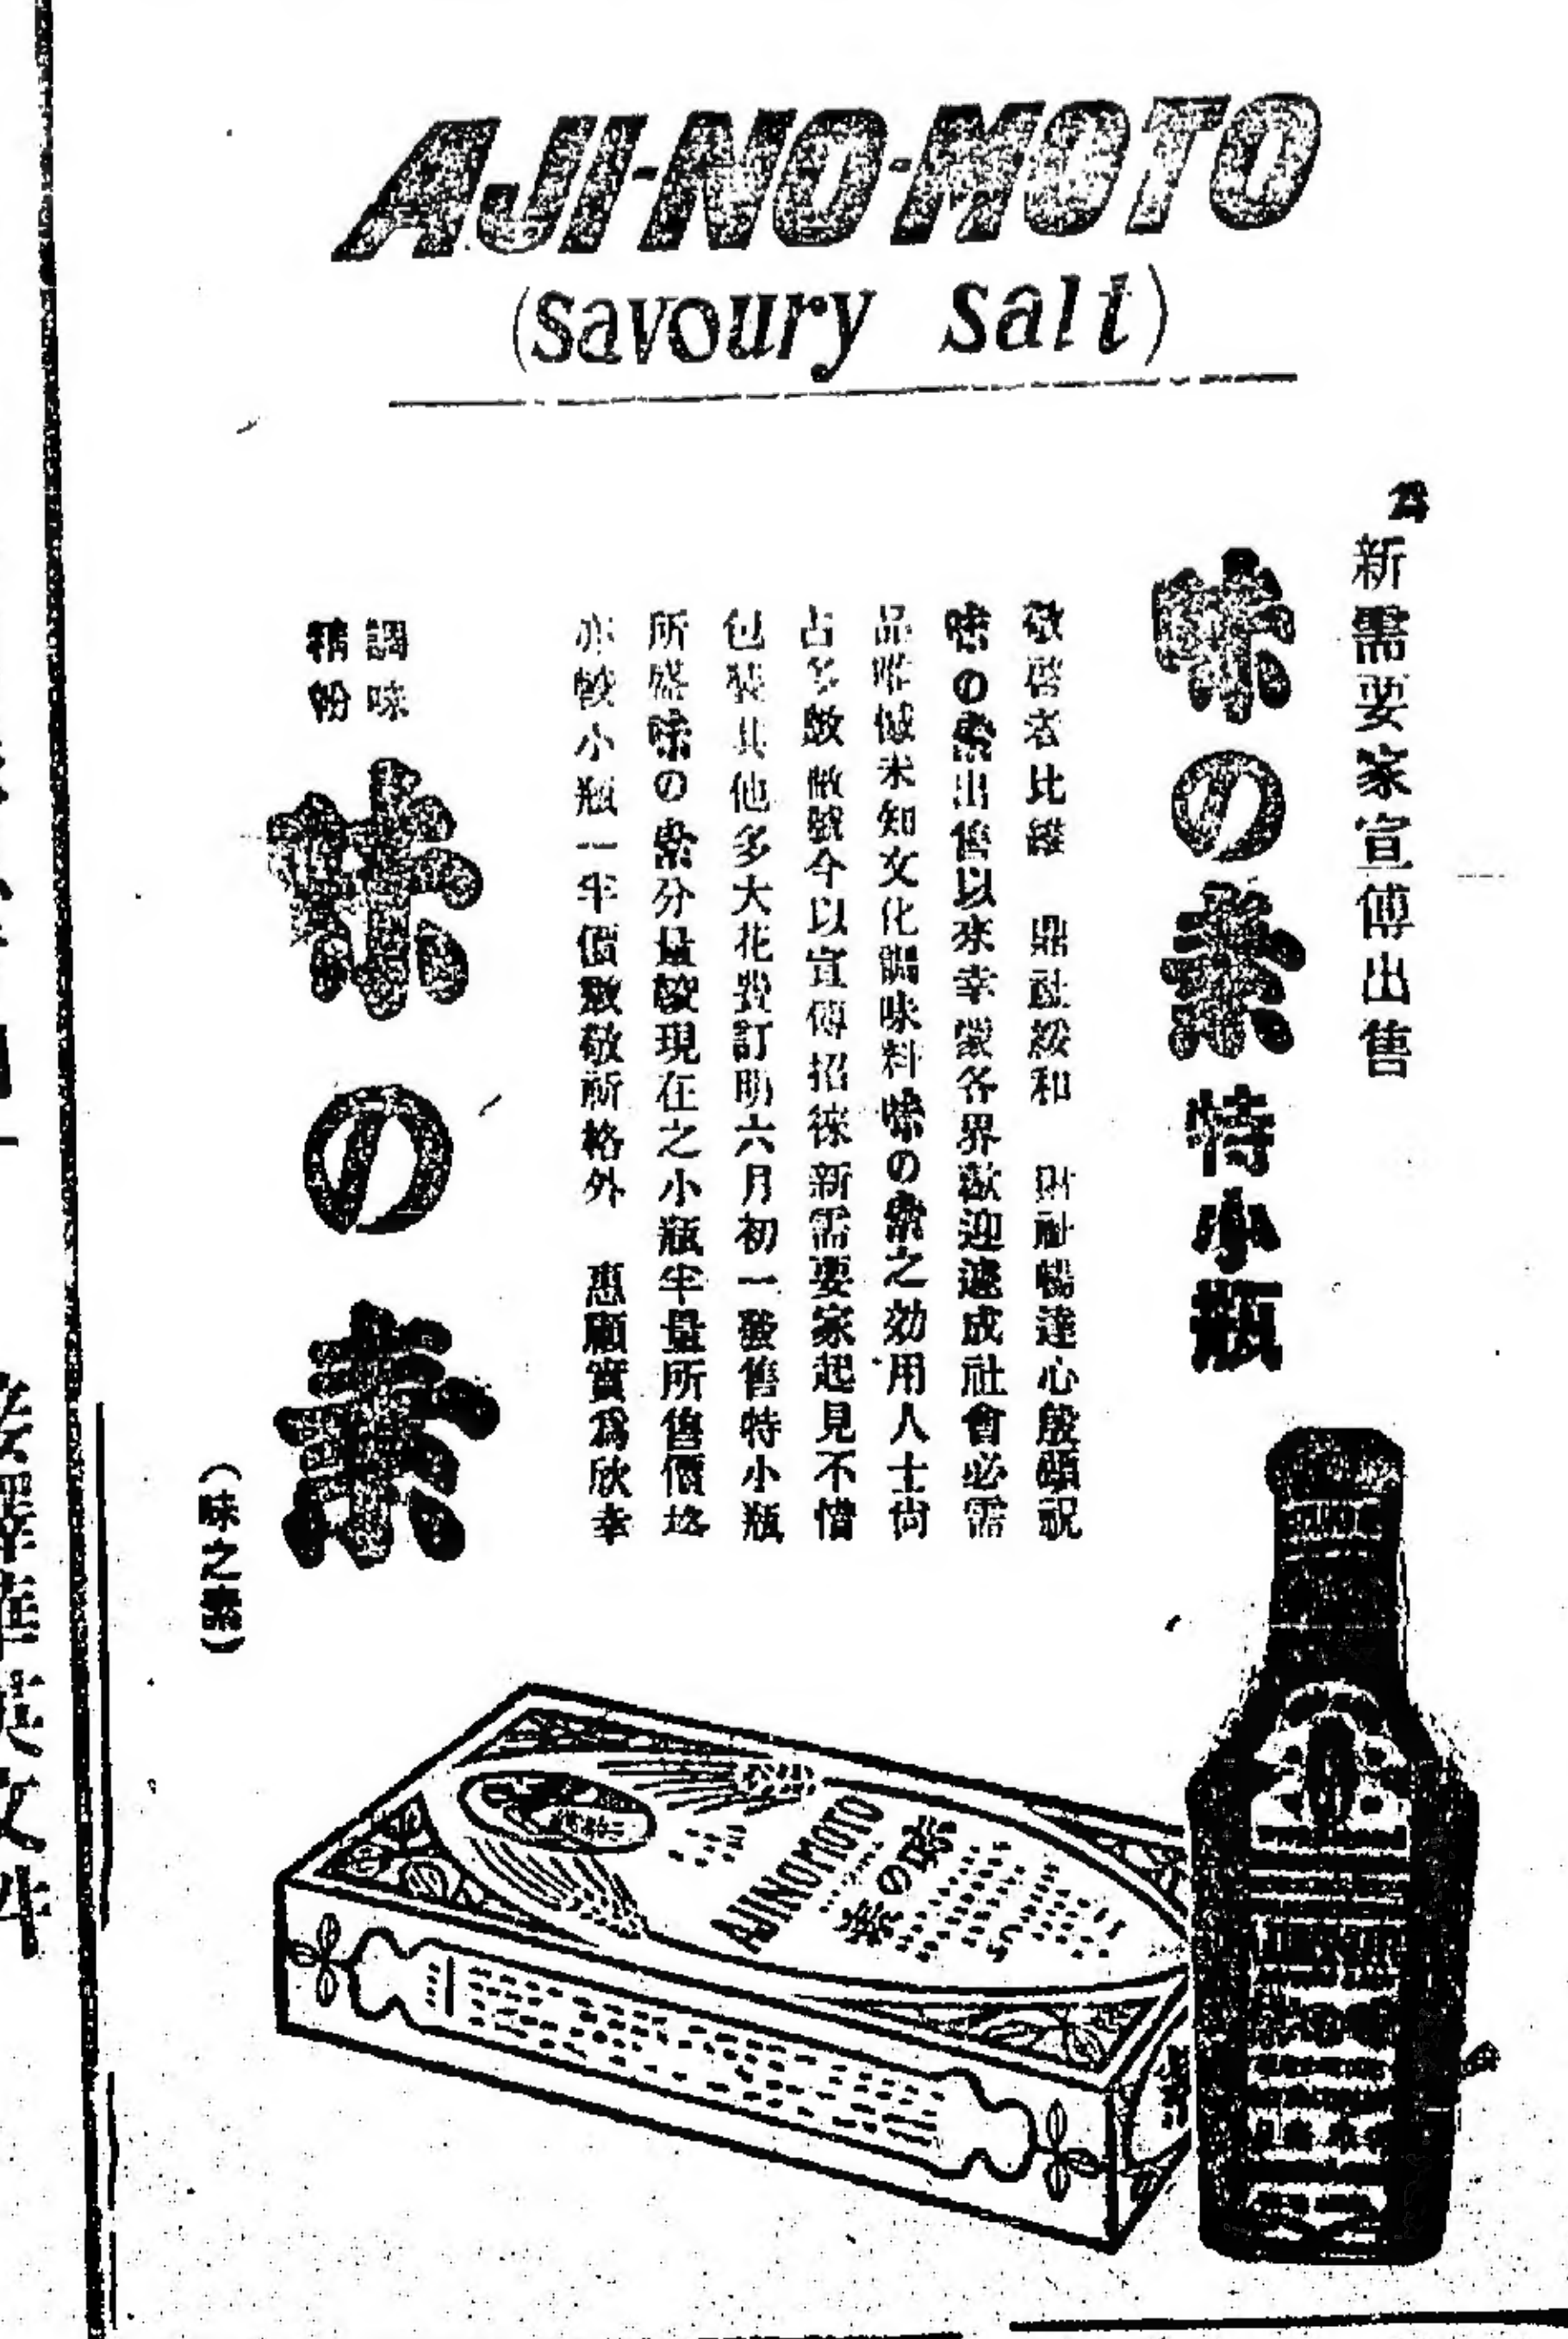 AJI-NO-MOTO
(savoury salt)
為新需要家宣傳出售
味の素特小瓶
敬啓者比維 鼎祉綏和 財祉暢達心殷頌祝
味の素出售以來幸蒙各界歡迎遂成社會必需
品唯憾未知文化調味料味の素之効用人士尚
占多數敝號今以宣傳招徠新需要家起見不惜
包裝其他多大花費訂明六月初一發售特小瓶
所盛味の素分量較現在之小瓶半量所售價格
亦較小瓶一半價敬祈格外 惠顧實為欣幸
調味
精粉
味の素
(味之素)
AJINOMOTO
味の素